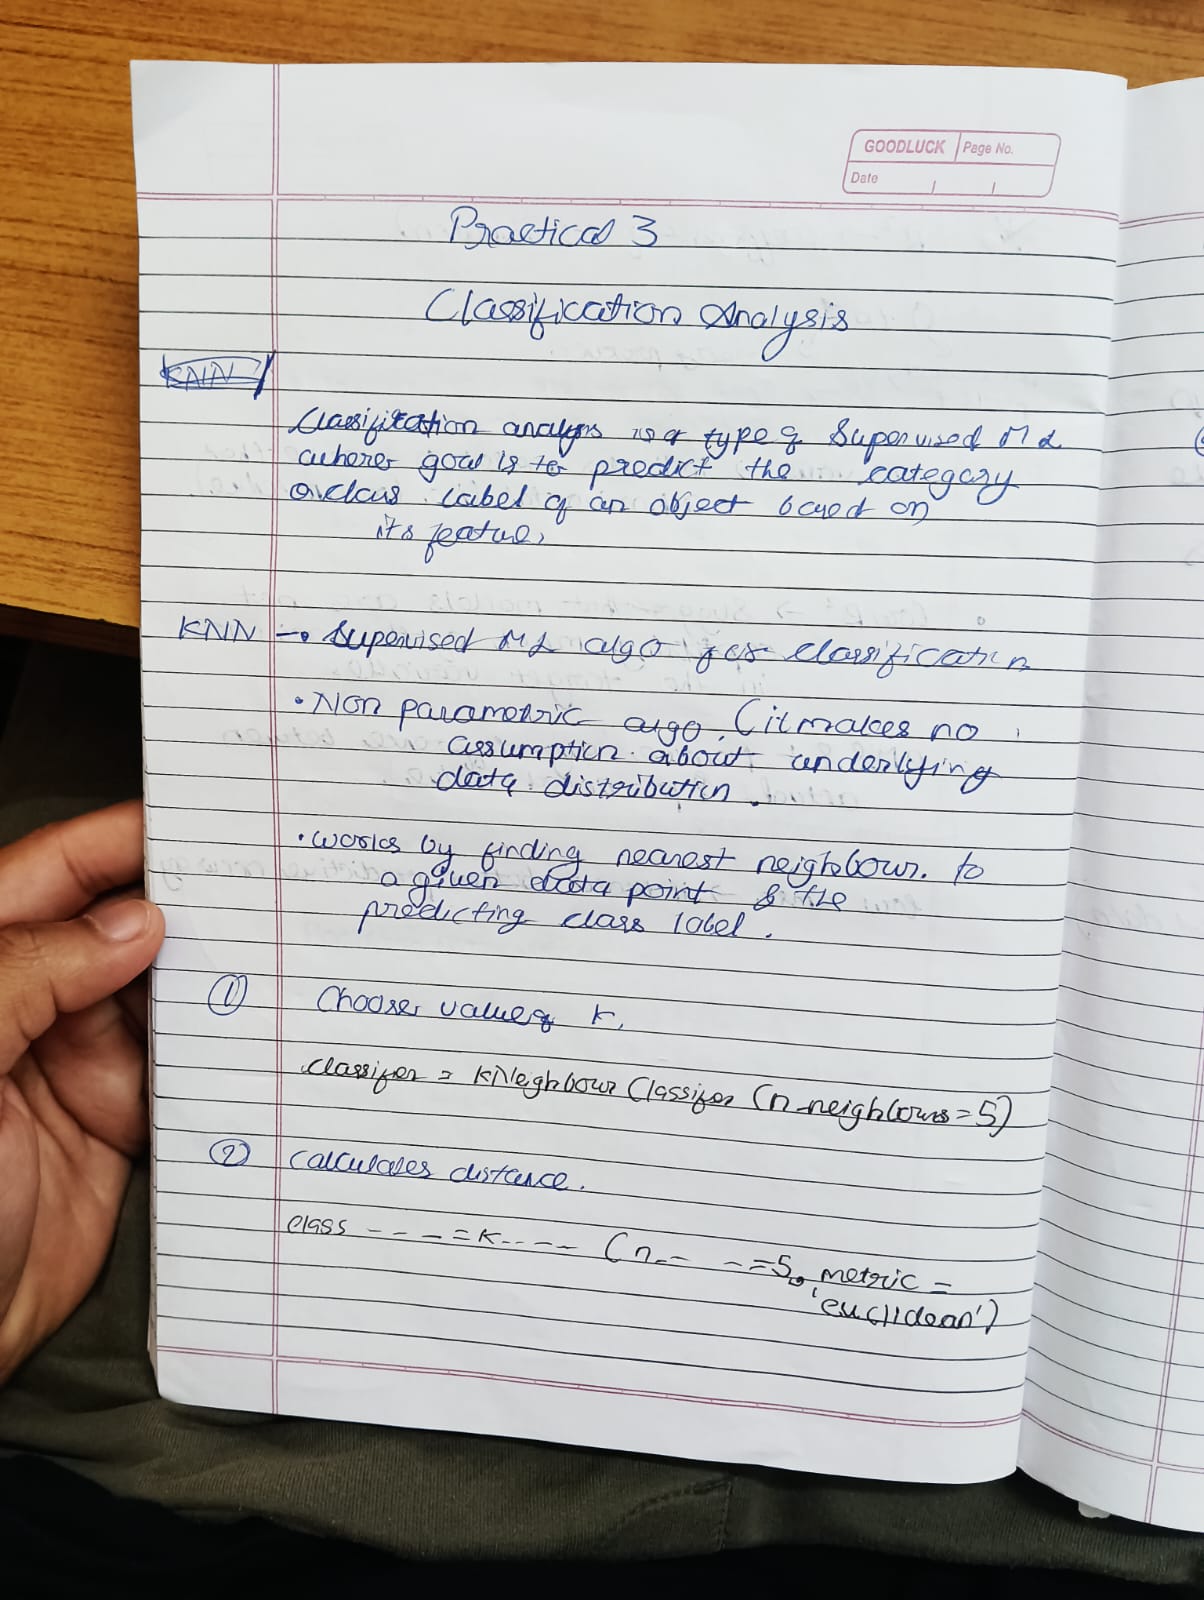 GOODLUCK Page No.
Date
Practical 3
Classification Analysis
KNN
Classification analysis is a type of Supervised ML
where goal is to predict the category
or class label of an object based on
its feature.
KNN → Supervised ML algo for classification
• Non parametric algo. (it makes no
assumption about underlying
data distribution.
• works by finding nearest neighbour to
a given data point & the
predicting class label.
① Choose value of K.
classifer = KNeighbourClassifer (n_neighbours = 5)
② Calculates distance.
class - - - - = K - - - - (n - - - - = 5, metric =
'euclidean')